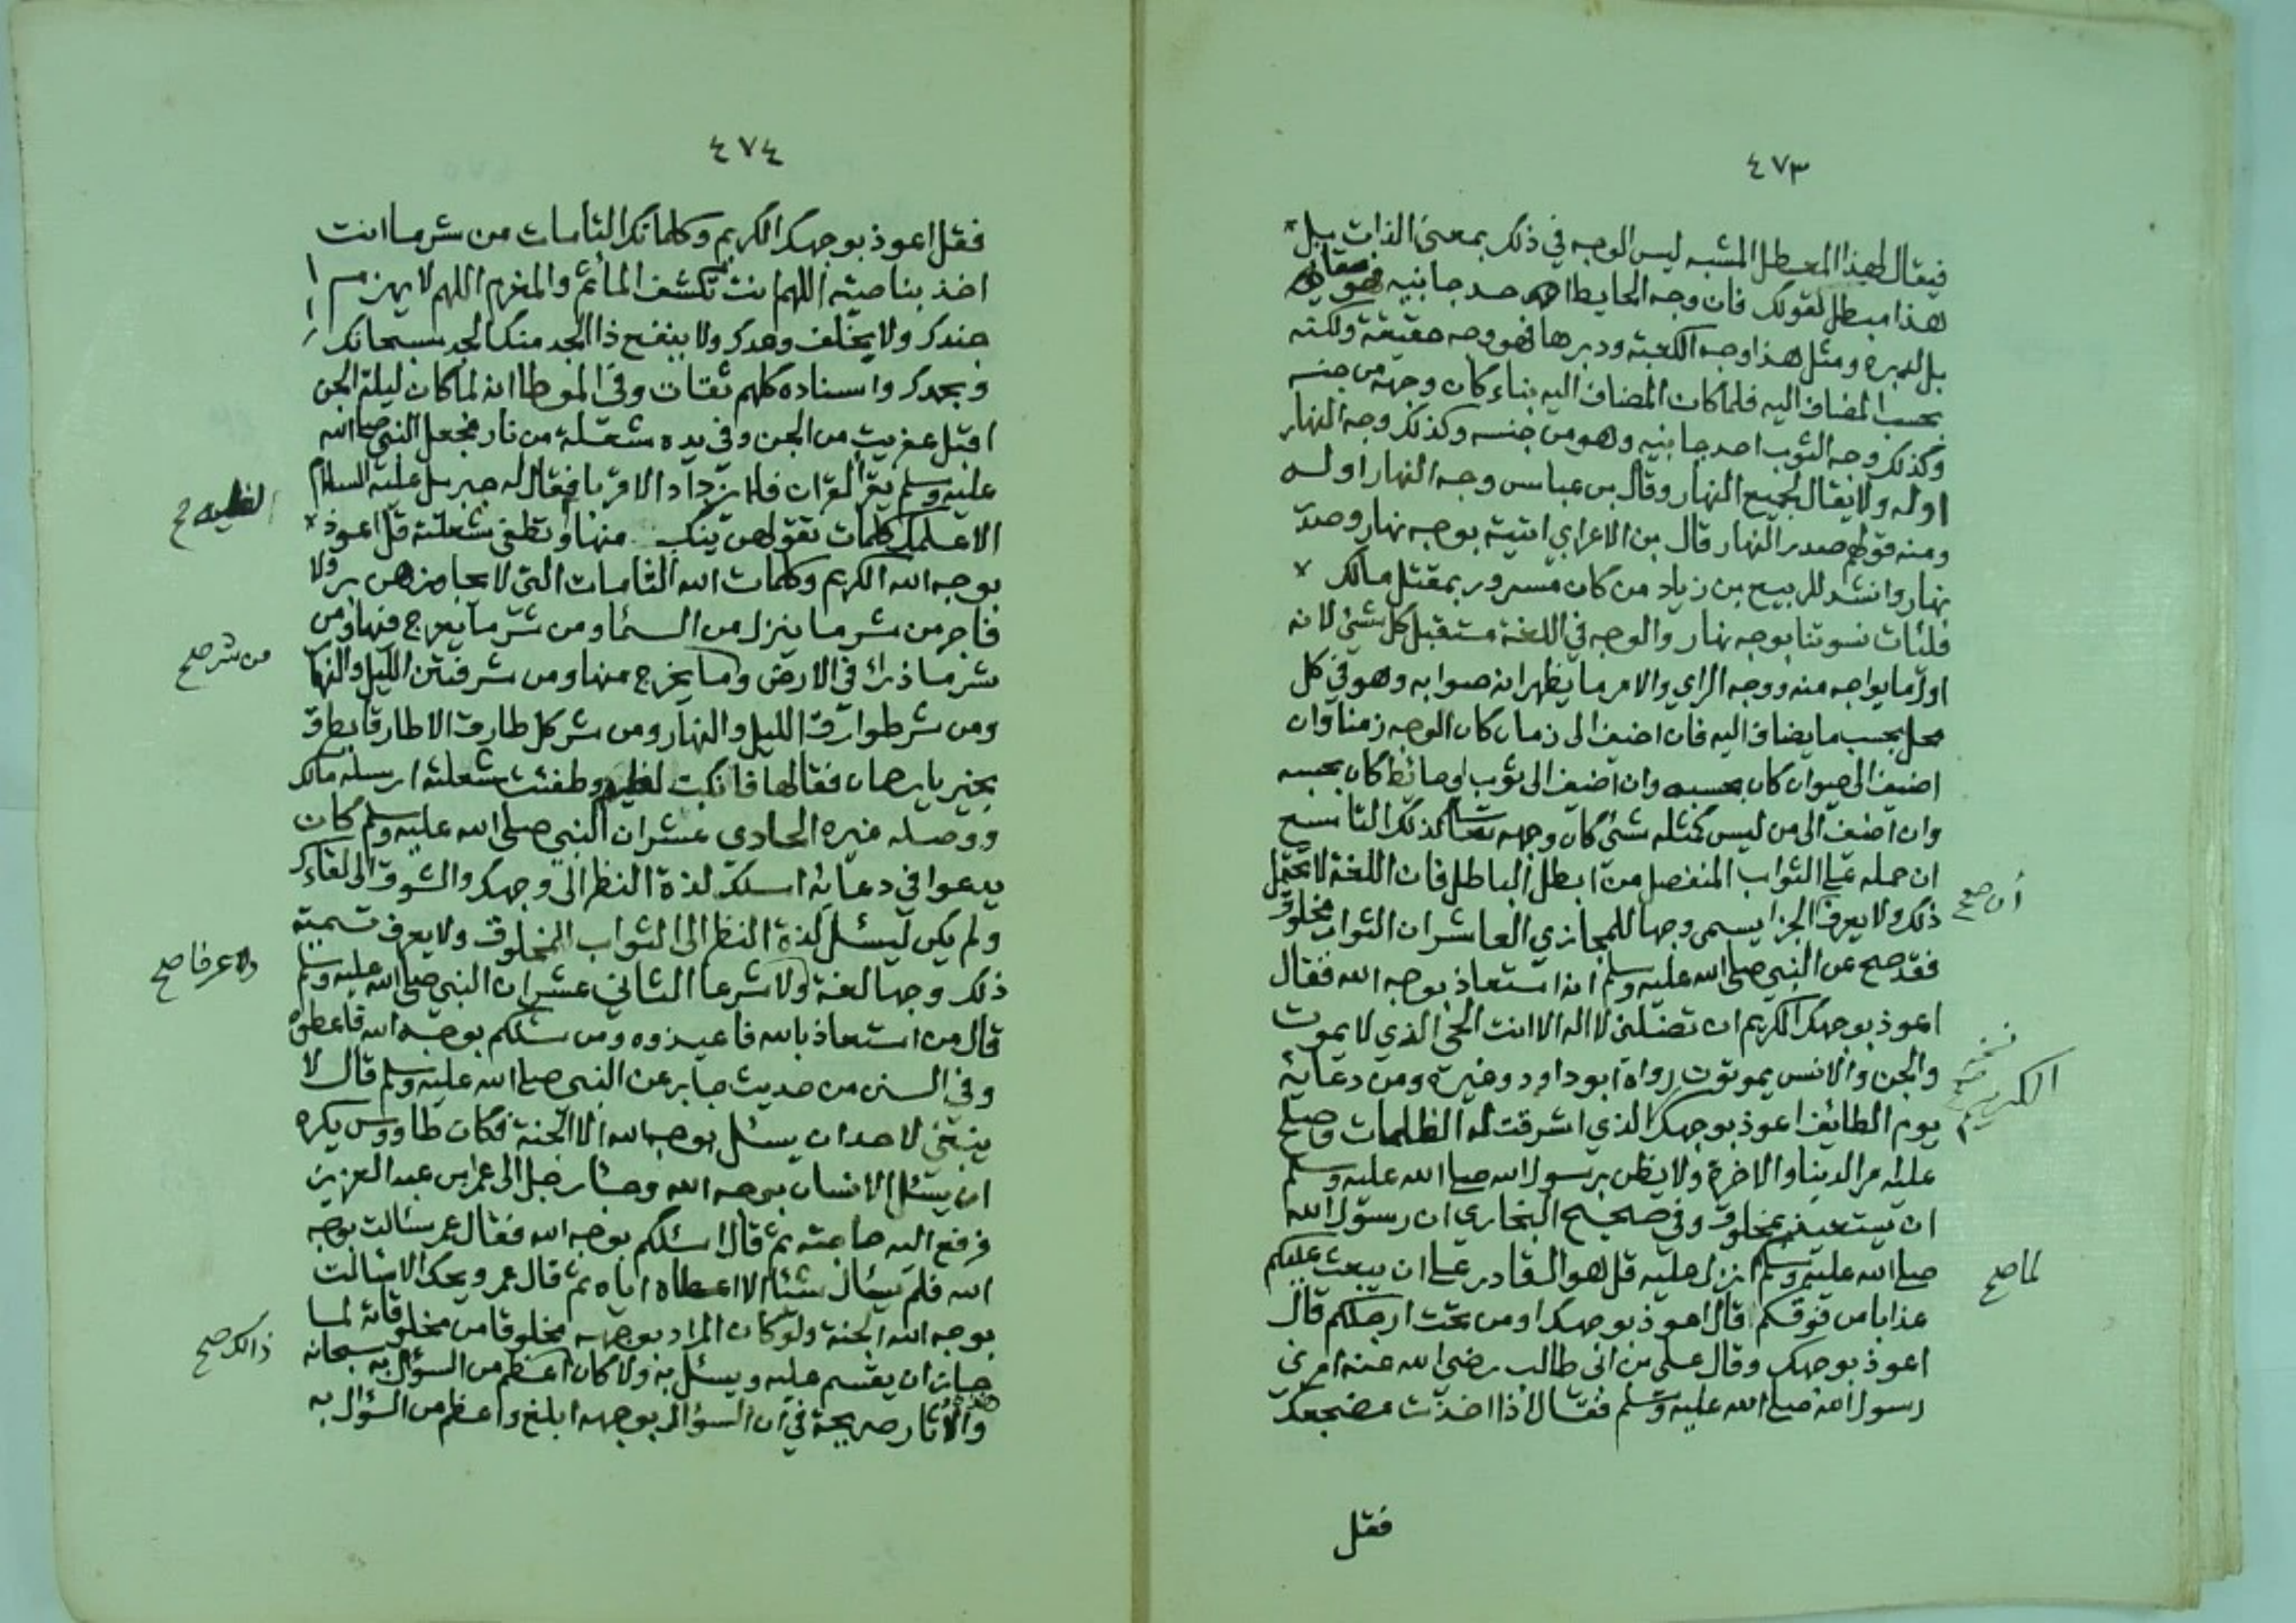 ٤٧٣
فيقال لهذا المعطل المشبه ليس الوجه في ذلك بمعنى الذات بل
هذا مبطل لقولك فان وجه الحايط احد جانبيه فهو مقابل
بل لدبره ومثل هذا وجه الكعبة ودبرها فهو وجه حقيقة ولكنه
بحسب المضاف اليه فلما كان المضاف اليه بناء كان وجهه من جنسه
وكذلك وجه الثوب احد جانبيه وهو من جنسه وكذلك وجه النهار
اوله ولا يقال لجميع النهار وقال بن عباس وجه النهار اوله
ومنه قولهم صدر النهار قال بن الاعرابي اتيته بوجه نهار وصدر
نهار وانشد للربيع بن زياد من كان مسرور بمقتل مالك
فليات نسوتنا بوجه نهار والوجه في اللغة مستقبل كل شئ لانه
اول ما يواجه منه ووجه الراي والامر ما يظهر انه صوابه وهو في كل
محل بحسب ما يضاف اليه فان اضيف الى زمان كان الوجه زمنا وان
اضيف الى حيوان كان بحسبه وان اضيف الى ثوب او حائط كان بحسبه
وان اضيف الى من ليس كمثله شئ كان وجهه تعالى كذلك التاسع
ان حمله على الثواب المنفصل من ابطل الباطل فان اللغة لا تحتمل
ذلك ولا يعرف الجزا يسمى وجها للمجازي العاشر ان الثواب مخلوق
أن صح
فقد صح عن النبي صلى الله عليه وسلم انه استعاذ بوجه الله فقال
اعوذ بوجهك الكريم ان تضلني لا اله الا انت الحي الذي لا يموت
والجن والانس يموتون رواه ابو داود وغيره ومن دعائه
نسخه الكريم
يوم الطائف اعوذ بوجهك الذي اشرقت له الظلمات وصلح
عليه امر الدينا والاخرة ولا يظن برسول الله صلى الله عليه وسلم
ان يستعيذ بمخلوق وفي صحيح البخاري ان رسول الله
صلى الله عليه وسلم انزل عليه قل هو القادر على ان يبعث عليكم
لما صح
عذابا من فوقكم قال اعوذ بوجهك او من تحت ارجلكم قال
اعوذ بوجهك وقال علي بن ابي طالب رضي الله عنه امرني
رسول الله صلى الله عليه وسلم فقال اذا اخذت مضجعك
فقل
٤٧٤
فقل اعوذ بوجهك الكريم وكلماتك التامات من شر ما انت
اخذ بناصيته اللهم انت تكشف المأثم والمغرم اللهم لا يهزم
جندك ولا يخلف وعدك ولا ينفع ذا الجد منك الجد سبحانك
وبحمدك واسناده كلهم ثقات وفي الموطا انه لما كان ليلة الجن
اقبل عفريت من الجن وفي يده شعلة من نار فجعل النبي صلى الله
عليه وسلم يقرأ القران فلا يزداد الا قربا فقال له جبريل عليه السلام
الا اعلمك كلمات تقولهن ينكب منها وتطفئ شعلته قل اعوذ
لفظيه صح
بوجه الله الكريم وكلمات الله التامات التي لا يجاوزهن بر ولا
فاجر من شر ما ينزل من السما ومن شر ما يعرج فيها ومن
من شر صح
شر ما ذرأ في الارض وما يخرج منها ومن شر فتن الليل والنهار
ومن شر طوارق الليل والنهار ومن شر كل طارق الا طارقا يطرق
بخير يا رحمان فقالها فانكب لفظيه وطفئت شعلته ارسله مالك
ووصله غيره الحادي عشر ان النبي صلى الله عليه وسلم كان
يدعوا في دعائه اسئلك لذة النظر الى وجهك والشوق الى لقاءك
ولم يكن ليسئل لذة النظر الى الثواب المخلوق ولا يعرف تسمية
ذلك وجها لغة ولا شرعا الثاني عشر ان النبي صلى الله عليه وسلم
ولا عرفا صح
قال من استعاذ بالله فاعيذوه ومن سئلكم بوجه الله فاعطوه
وفي السنن من حديث جابر عن النبي صلى الله عليه وسلم قال لا
ينبغي لاحد ان يسئل بوجه الله الا الجنة فكان طاووس يكره
ان يسئل الانسان بوجه الله وجاء رجل الى عمر ابن عبد العزيز
فرفع اليه حاجته ثم قال اسئلكم بوجه الله فقال عمر سئالت بوجه
الله فلم يسئال شئا الا اعطاه اياه ثم قال عمر ويحك الا سئالت
بوجه الله الجنة ولو كان المراد بوجهه مخلوقا من مخلوقاته لما
جاز ان يقسم عليه ويسئل به ولا كان اعظم من السؤال به سبحانه
ذالك صح
والأثار صريحة في ان السؤال بوجهه ابلغ واعظم من السؤال به